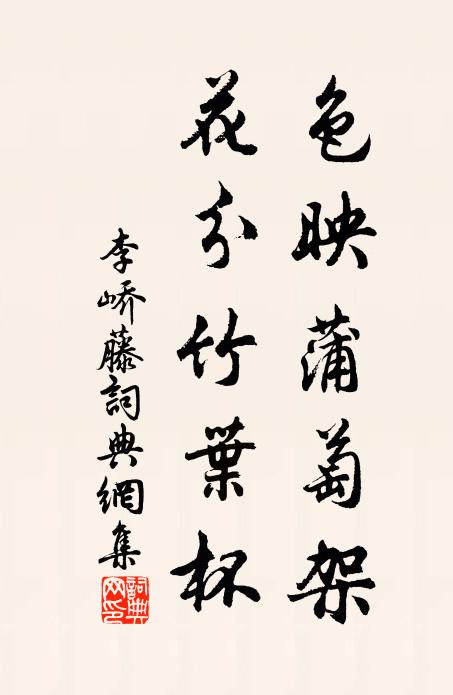 色映蒲萄架
花分竹葉杯
李嶠藤詞典網集
詞典網印